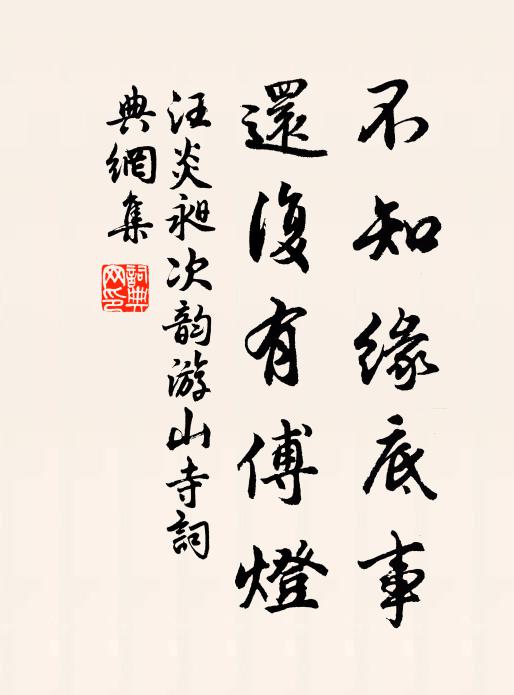 不知緣底事
還復有傅燈
汪炎昶次韵游山寺詞
典網集
詞典
网印